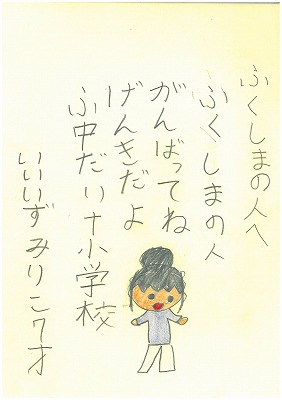 ふくしまの人へ
ふくしまの人
がんばってね
げんきだよ
ふ中だい十小学校
いいいずみりこ7才